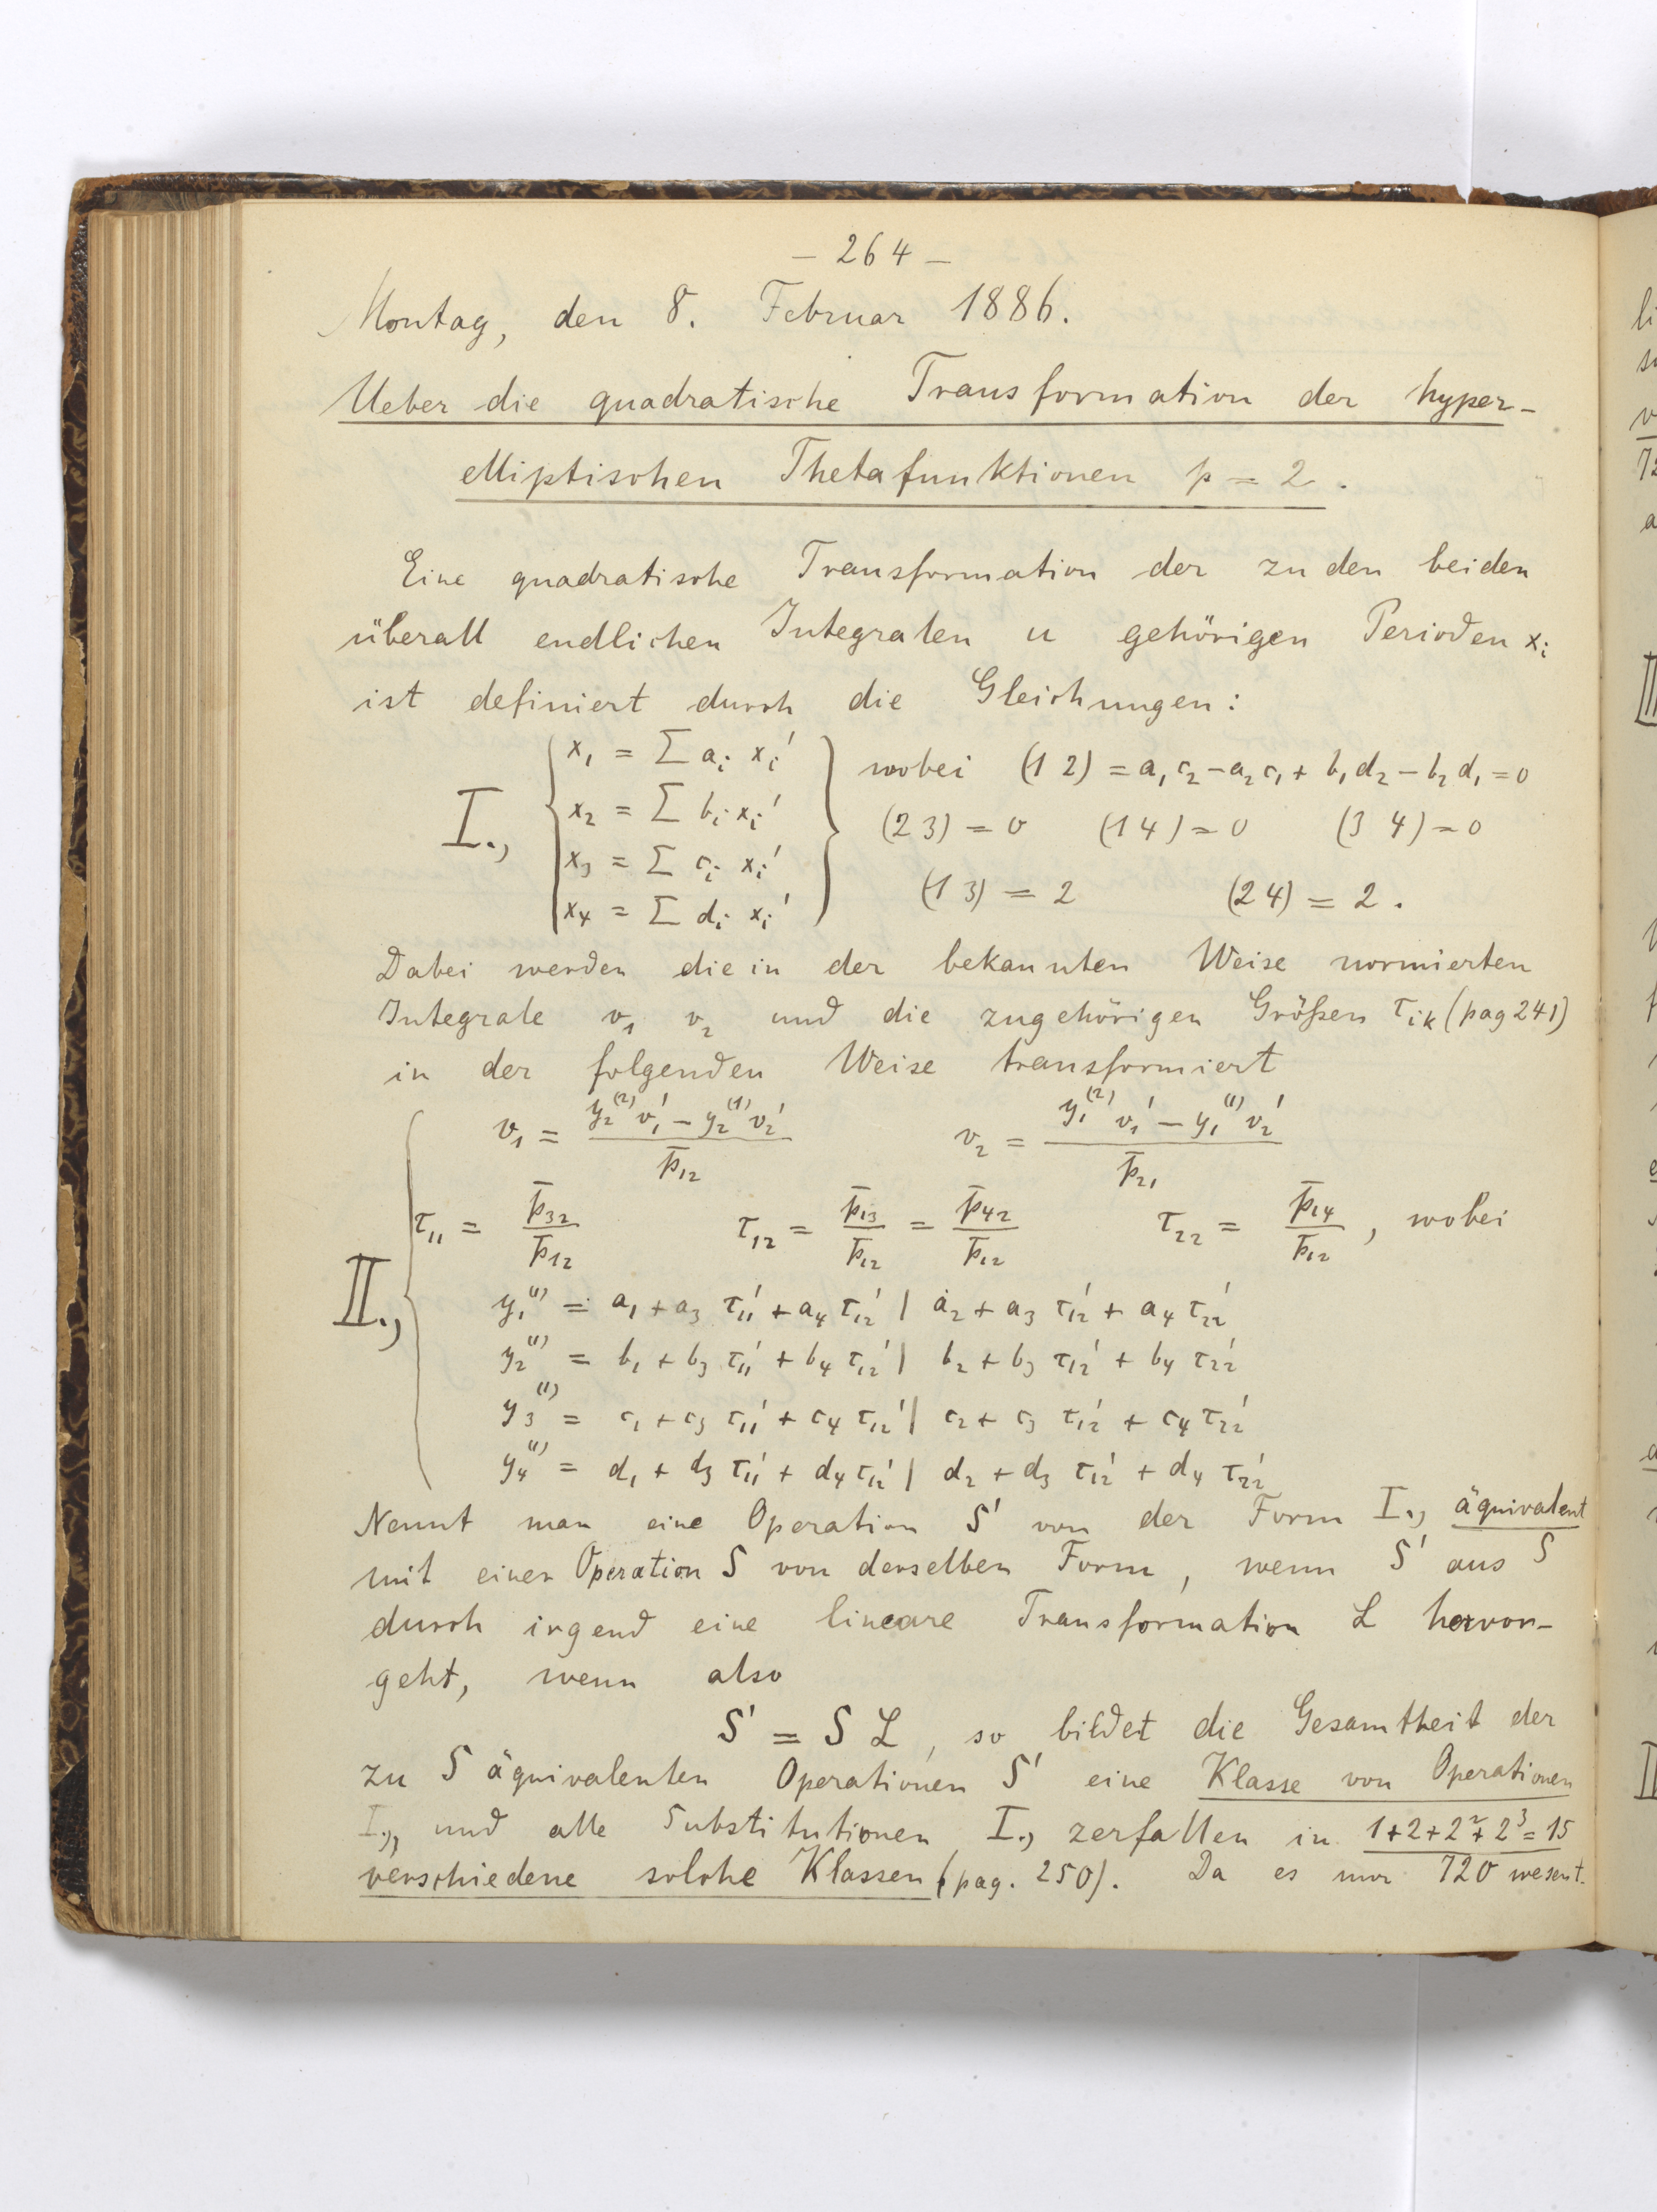 – 264 –
Montag, den 8. Februar 1886.
Ueber die quadratische Transformation der hyper-
elliptischen Thetafunktionen p = 2.
Eine quadratische Transformation der zu den beiden
überall endlichen Integralen u gehörigen Perioden xᵢ
ist definiert durch die Gleichungen:
I., { x₁ = Σ aᵢ xᵢ' } wobei (1 2) = a₁c₂ – a₂c₁ + b₁d₂ – b₂d₁ = 0
x₂ = Σ bᵢ xᵢ' (2 3) = 0 (1 4) = 0 (3 4) = 0
x₃ = Σ cᵢ xᵢ'
x₄ = Σ dᵢ xᵢ' (1 3) = 2 (2 4) = 2.
Dabei werden die in der bekannten Weise normierten
Integrale v₁ v₂ und die zugehörigen Größen τᵢₖ (pag 241)
in der folgenden Weise transformiert
II., { v₁ = (y₂⁽²⁾ v₁' – y₂⁽¹⁾ v₂') / p̄₁₂ v₂ = (y₁⁽²⁾ v₁' – y₁⁽¹⁾ v₂') / p̄₂₁
τ₁₁ = p̄₃₂ / p̄₁₂ τ₁₂ = p̄₁₃ / p̄₁₂ = p̄₄₂ / p̄₁₂ τ₂₂ = p̄₁₄ / p̄₁₂ , wobei
y₁⁽¹⁾ = a₁ + a₃ τ₁₁' + a₄ τ₁₂' | a₂ + a₃ τ₁₂' + a₄ τ₂₂'
y₂⁽¹⁾ = b₁ + b₃ τ₁₁' + b₄ τ₁₂' | b₂ + b₃ τ₁₂' + b₄ τ₂₂'
y₃⁽¹⁾ = c₁ + c₃ τ₁₁' + c₄ τ₁₂' | c₂ + c₃ τ₁₂' + c₄ τ₂₂'
y₄⁽¹⁾ = d₁ + d₃ τ₁₁' + d₄ τ₁₂' | d₂ + d₃ τ₁₂' + d₄ τ₂₂'
Nennt man eine Operation S' von der Form I., äquivalent
mit einer Operation S von derselben Form, wenn S' aus S
durch irgend eine lineare Transformation L hervor-
geht, wenn also
S' = S L, so bildet die Gesamtheit der
zu S äquivalenten Operationen S' eine Klasse von Operationen
I., und alle Substitutionen I., zerfallen in 1+2+2²+2³=15
verschiedene solche Klassen (pag. 250). Da es nur 720 wesent.